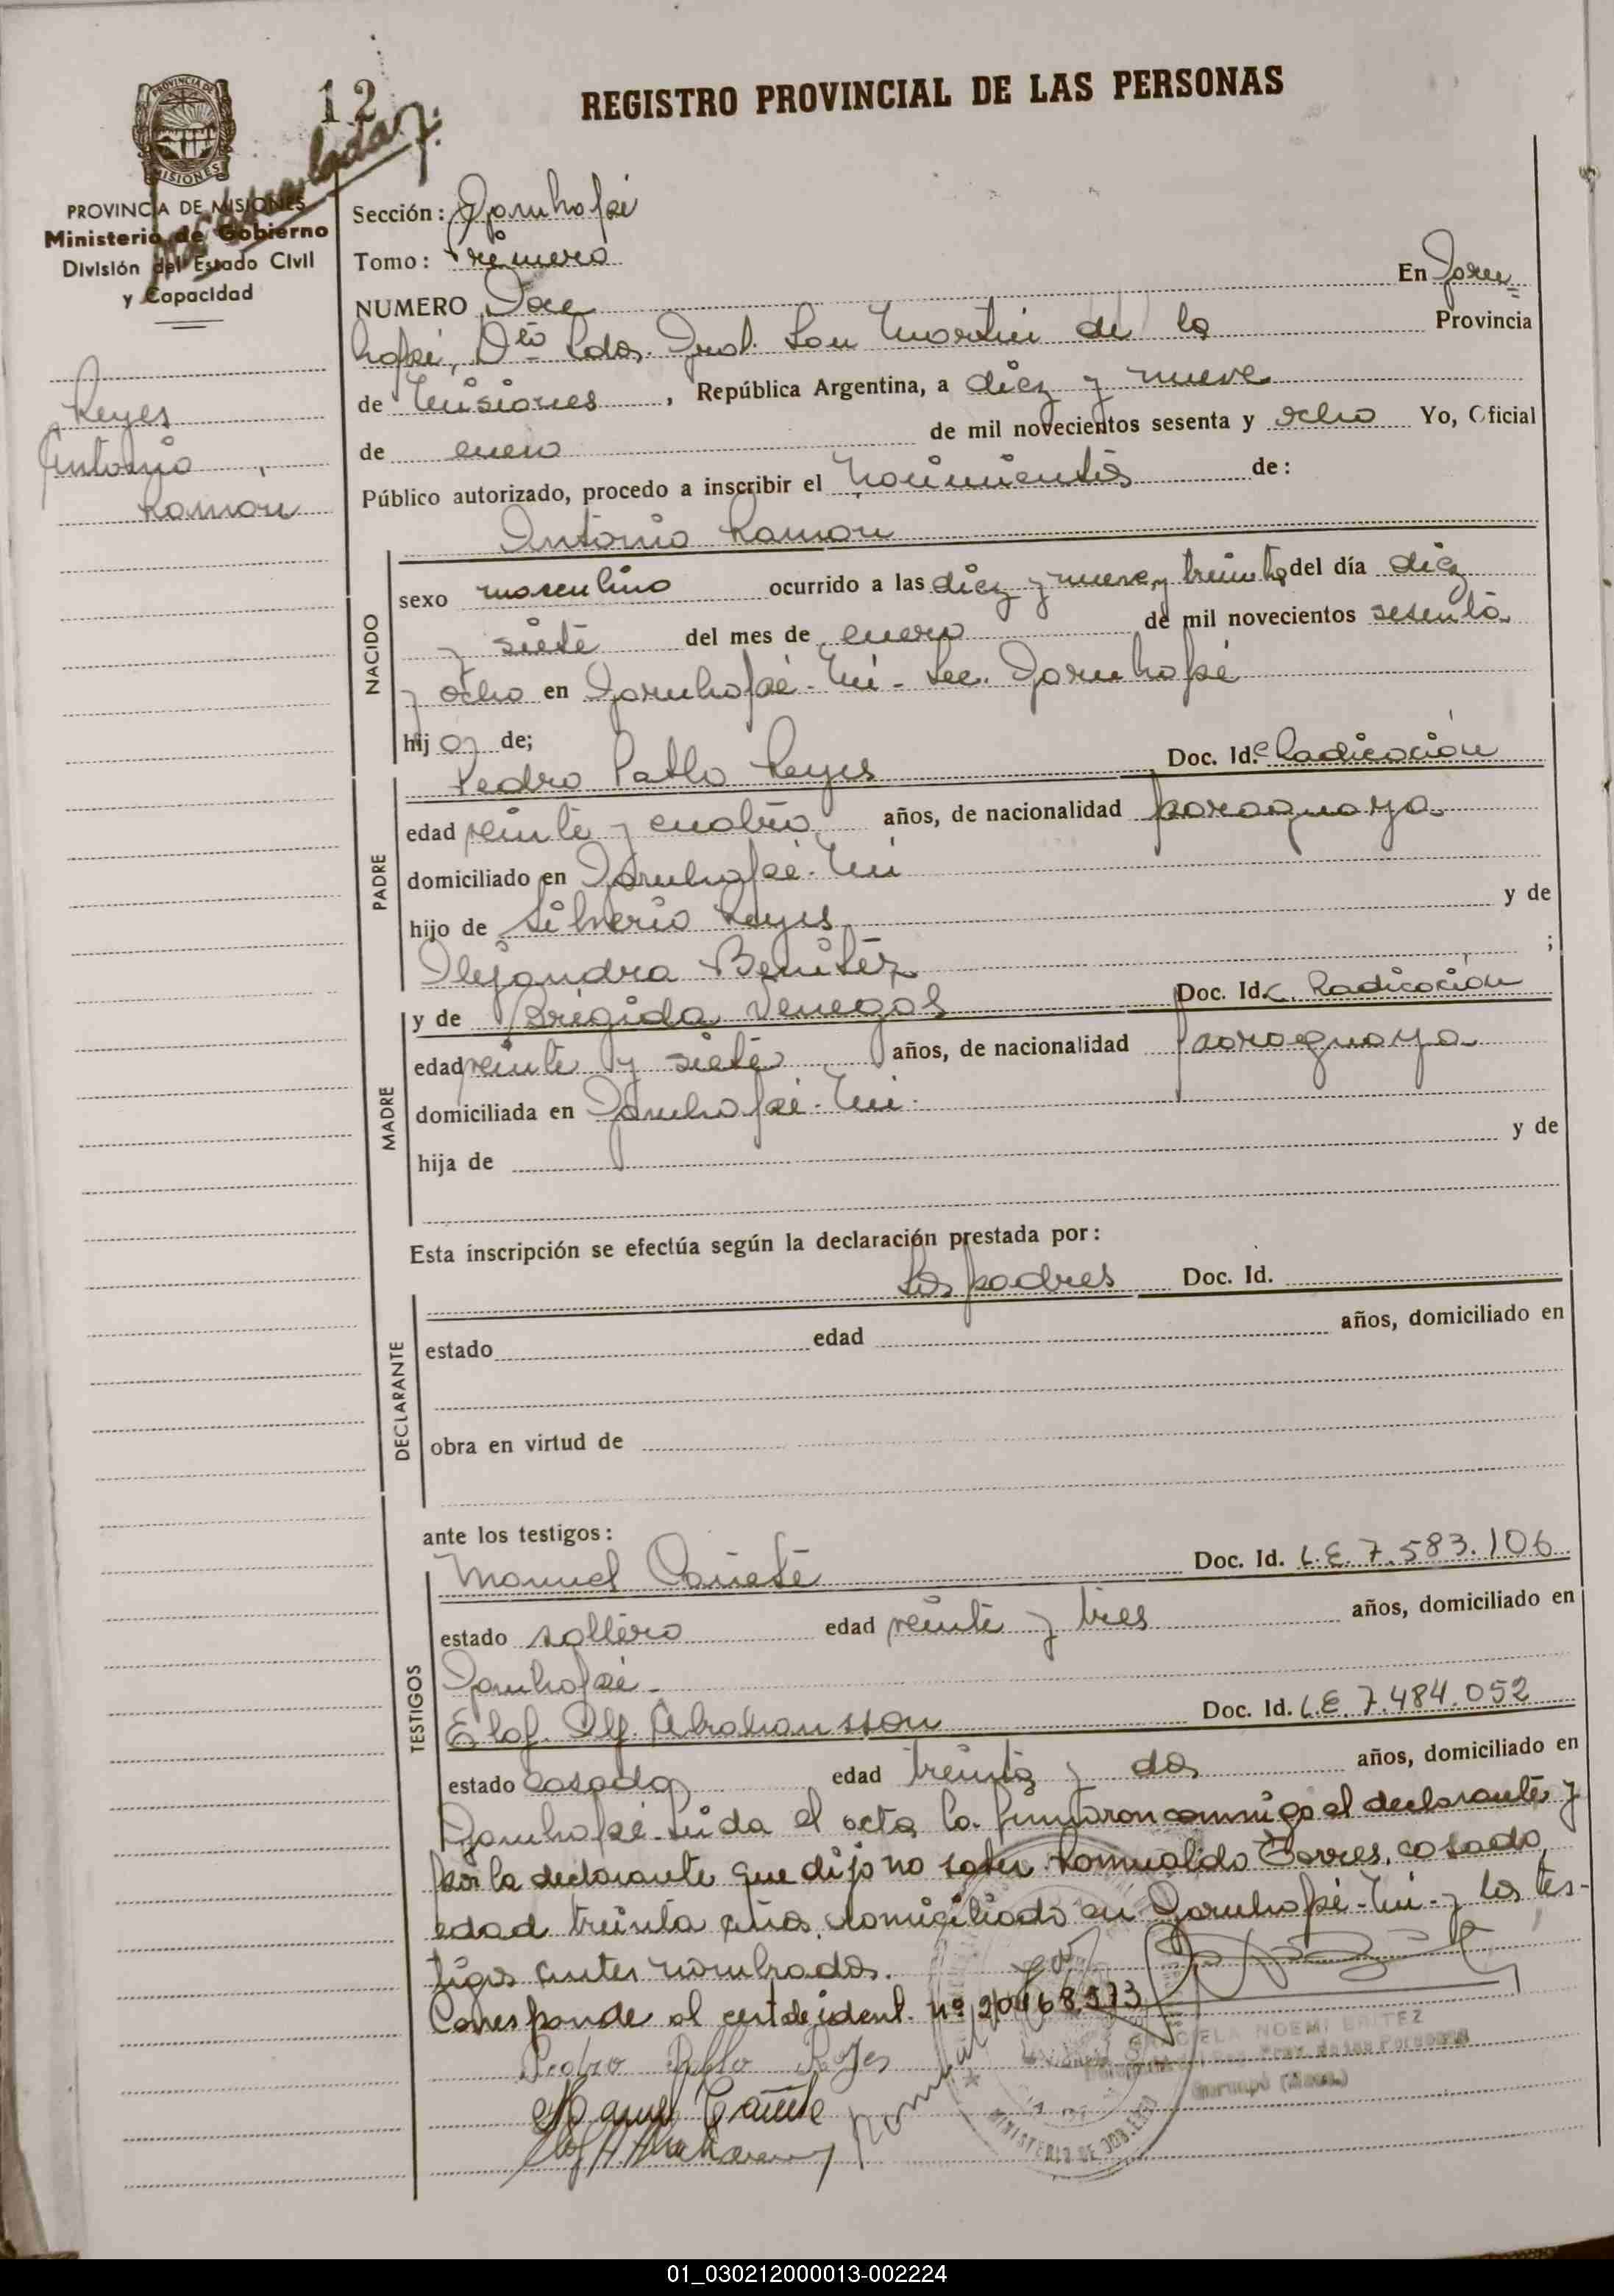 REGISTRO PROVINCIAL DE LAS PERSONAS
12
PROVINCIA DE MISIONES
PROVINCIA DE MISIONES
Ministerio de Gobierno
División del Estado Civil
y Capacidad
Reyes
Antonio
Ramón
Sección: Garuhapé
Tomo: Primero
NUMERO Doce En Garu=
hapé, Dto Ldor. Gral. San Martín de la Provincia
de Misiones, República Argentina, a diez y nueve
de enero de mil novecientos sesenta y ocho Yo, Oficial
Público autorizado, procedo a inscribir el nacimiento de:
Antonio Ramon
NACIDO
sexo masculino ocurrido a las diez y nueve y treinta del día diez
y siete del mes de enero de mil novecientos sesenta
y ocho en Garuhapé-Mi-Sec. Garuhapé
hijo de;
PADRE
Pedro Pablo Reyes Doc. Id. C Radicación
edad veinte y cuatro años, de nacionalidad paraguaya
domiciliado en Garuhapé-Mi
hijo de Silverio Reyes y de
Alejandra Benítez ;
MADRE
y de Brígida Venegas Doc. Id. C. Radicación
edad veinte y siete años, de nacionalidad paraguaya
domiciliada en Garuhapé-Mi-
hija de y de
Esta inscripción se efectúa según la declaración prestada por:
DECLARANTE
Los padres Doc. Id.
estado edad años, domiciliado en
obra en virtud de
ante los testigos:
TESTIGOS
Manuel Cañete Doc. Id. L.E. 7.583.106
estado soltero edad veinte y tres años, domiciliado en
Garuhapé-
Elof Alf. Abrahansson Doc. Id. L.E. 7.484.052
estado casado edad treinta y dos años, domiciliado en
Garuhapé-Leída el acta la firmaron conmigo el declarante y
por la declarante que dijo no saber Romualdo Torres, casado,
edad treinta años, domiciliado en Garuhapé-Mi-y los tes-
tigos antes nombrados.
Corresponde al cert de ident. nº 20.168.973
Pedro Pablo Reyes
Manuel Cañete
GRACIELA NOEMI BRITEZ
Garuhapé (Mnes.)
MINISTERIO DE GOBIERNO
01_030212000013-002224